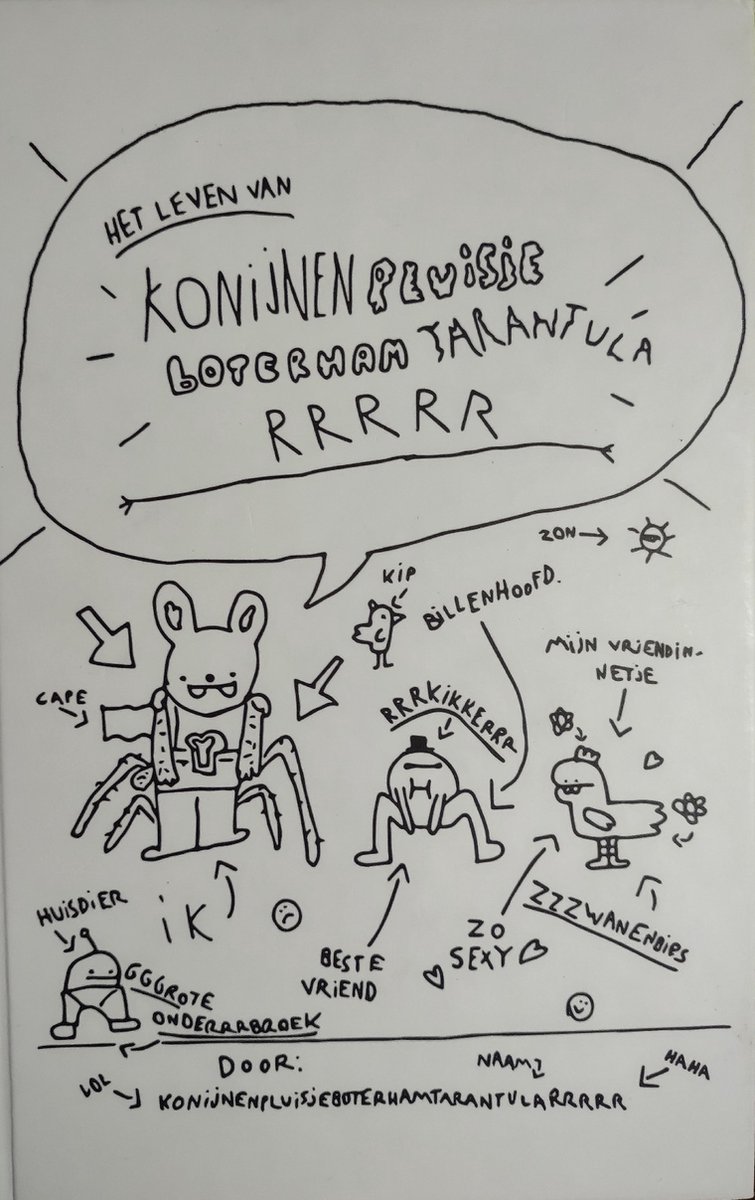 HET LEVEN VAN
KONIJNEN PLUISJE
BOTERHAM TARANTULA
RRRRR
ZON
KIP
BILLENHOOFD.
MIJN VRIENDIN-
NETJE
CAPE
RRRKIKKERRR
HUISDIER
IK
BESTE
VRIEND
ZO
SEXY
ZZZWANENBIPS
GGGROTE
ONDERRRBROEK
DOOR:
NAAM
HAHA
LOL
KONIJNENPLUISJEBOTERHAMTARANTULARRRRR